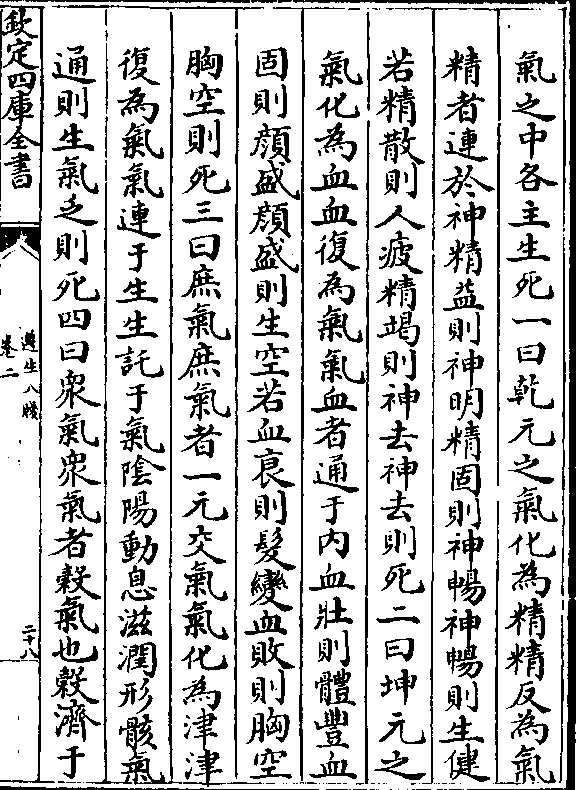 氣之中各主生死一曰乾元之氣化為精精反為氣
精者連於神精益則神明精固則神暢神暢則生健
若精散則人疲精竭則神去神去則死二曰坤元之
氣化為血血復為氣氣血者通于内血壯則體豐血
固則顔盛顔盛則生空若血衰則髮變血敗則胸空
胸空則死三曰庶氣庶氣者一元交氣氣化為津津
復為氣氣連于生生託于氣陰陽動息滋潤形骸氣
通則生氣乏則死四曰衆氣衆氣者穀氣也穀濟于
欽定四庫全書
遵生八牋
卷二
二十八